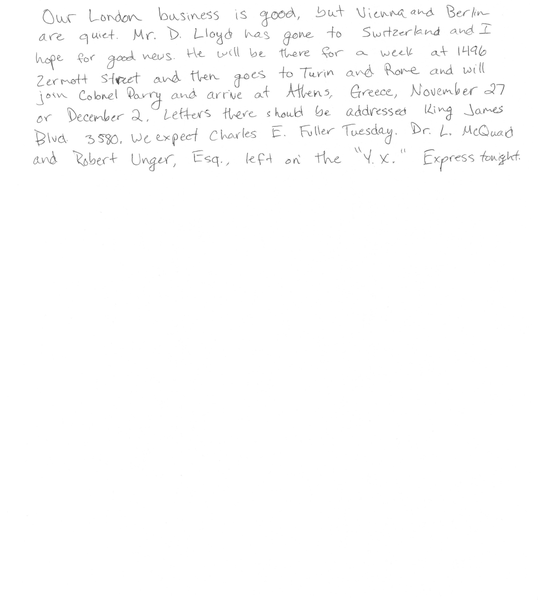 Our London business is good, but Vienna and Berlin
are quiet. Mr. D. Lloyd has gone to Switzerland and I
hope for good news. He will be there for a week at 1496
Zermott Street and then goes to Turin and Rome and will
join Colonel Parry and arrive at Athens, Greece, November 27
or December 2. Letters there should be addressed King James
Blvd 3580. We expect Charles E. Fuller Tuesday. Dr. L. McQuad
and Robert Unger, Esq., left on the "Y.X." Express tonght.